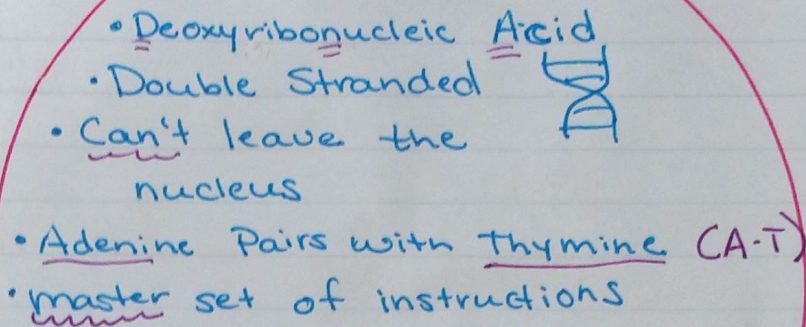 • Deoxyribonucleic Acid
• Double Stranded
• Can't leave the
nucleus
• Adenine Pairs with Thymine (A-T)
• master set of instructions